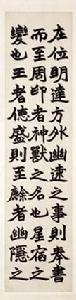 在位明達方外幽遠之事則奉書
而至周印者神獸之名也星宿之
變也王者德盛則至麟者幽隱之